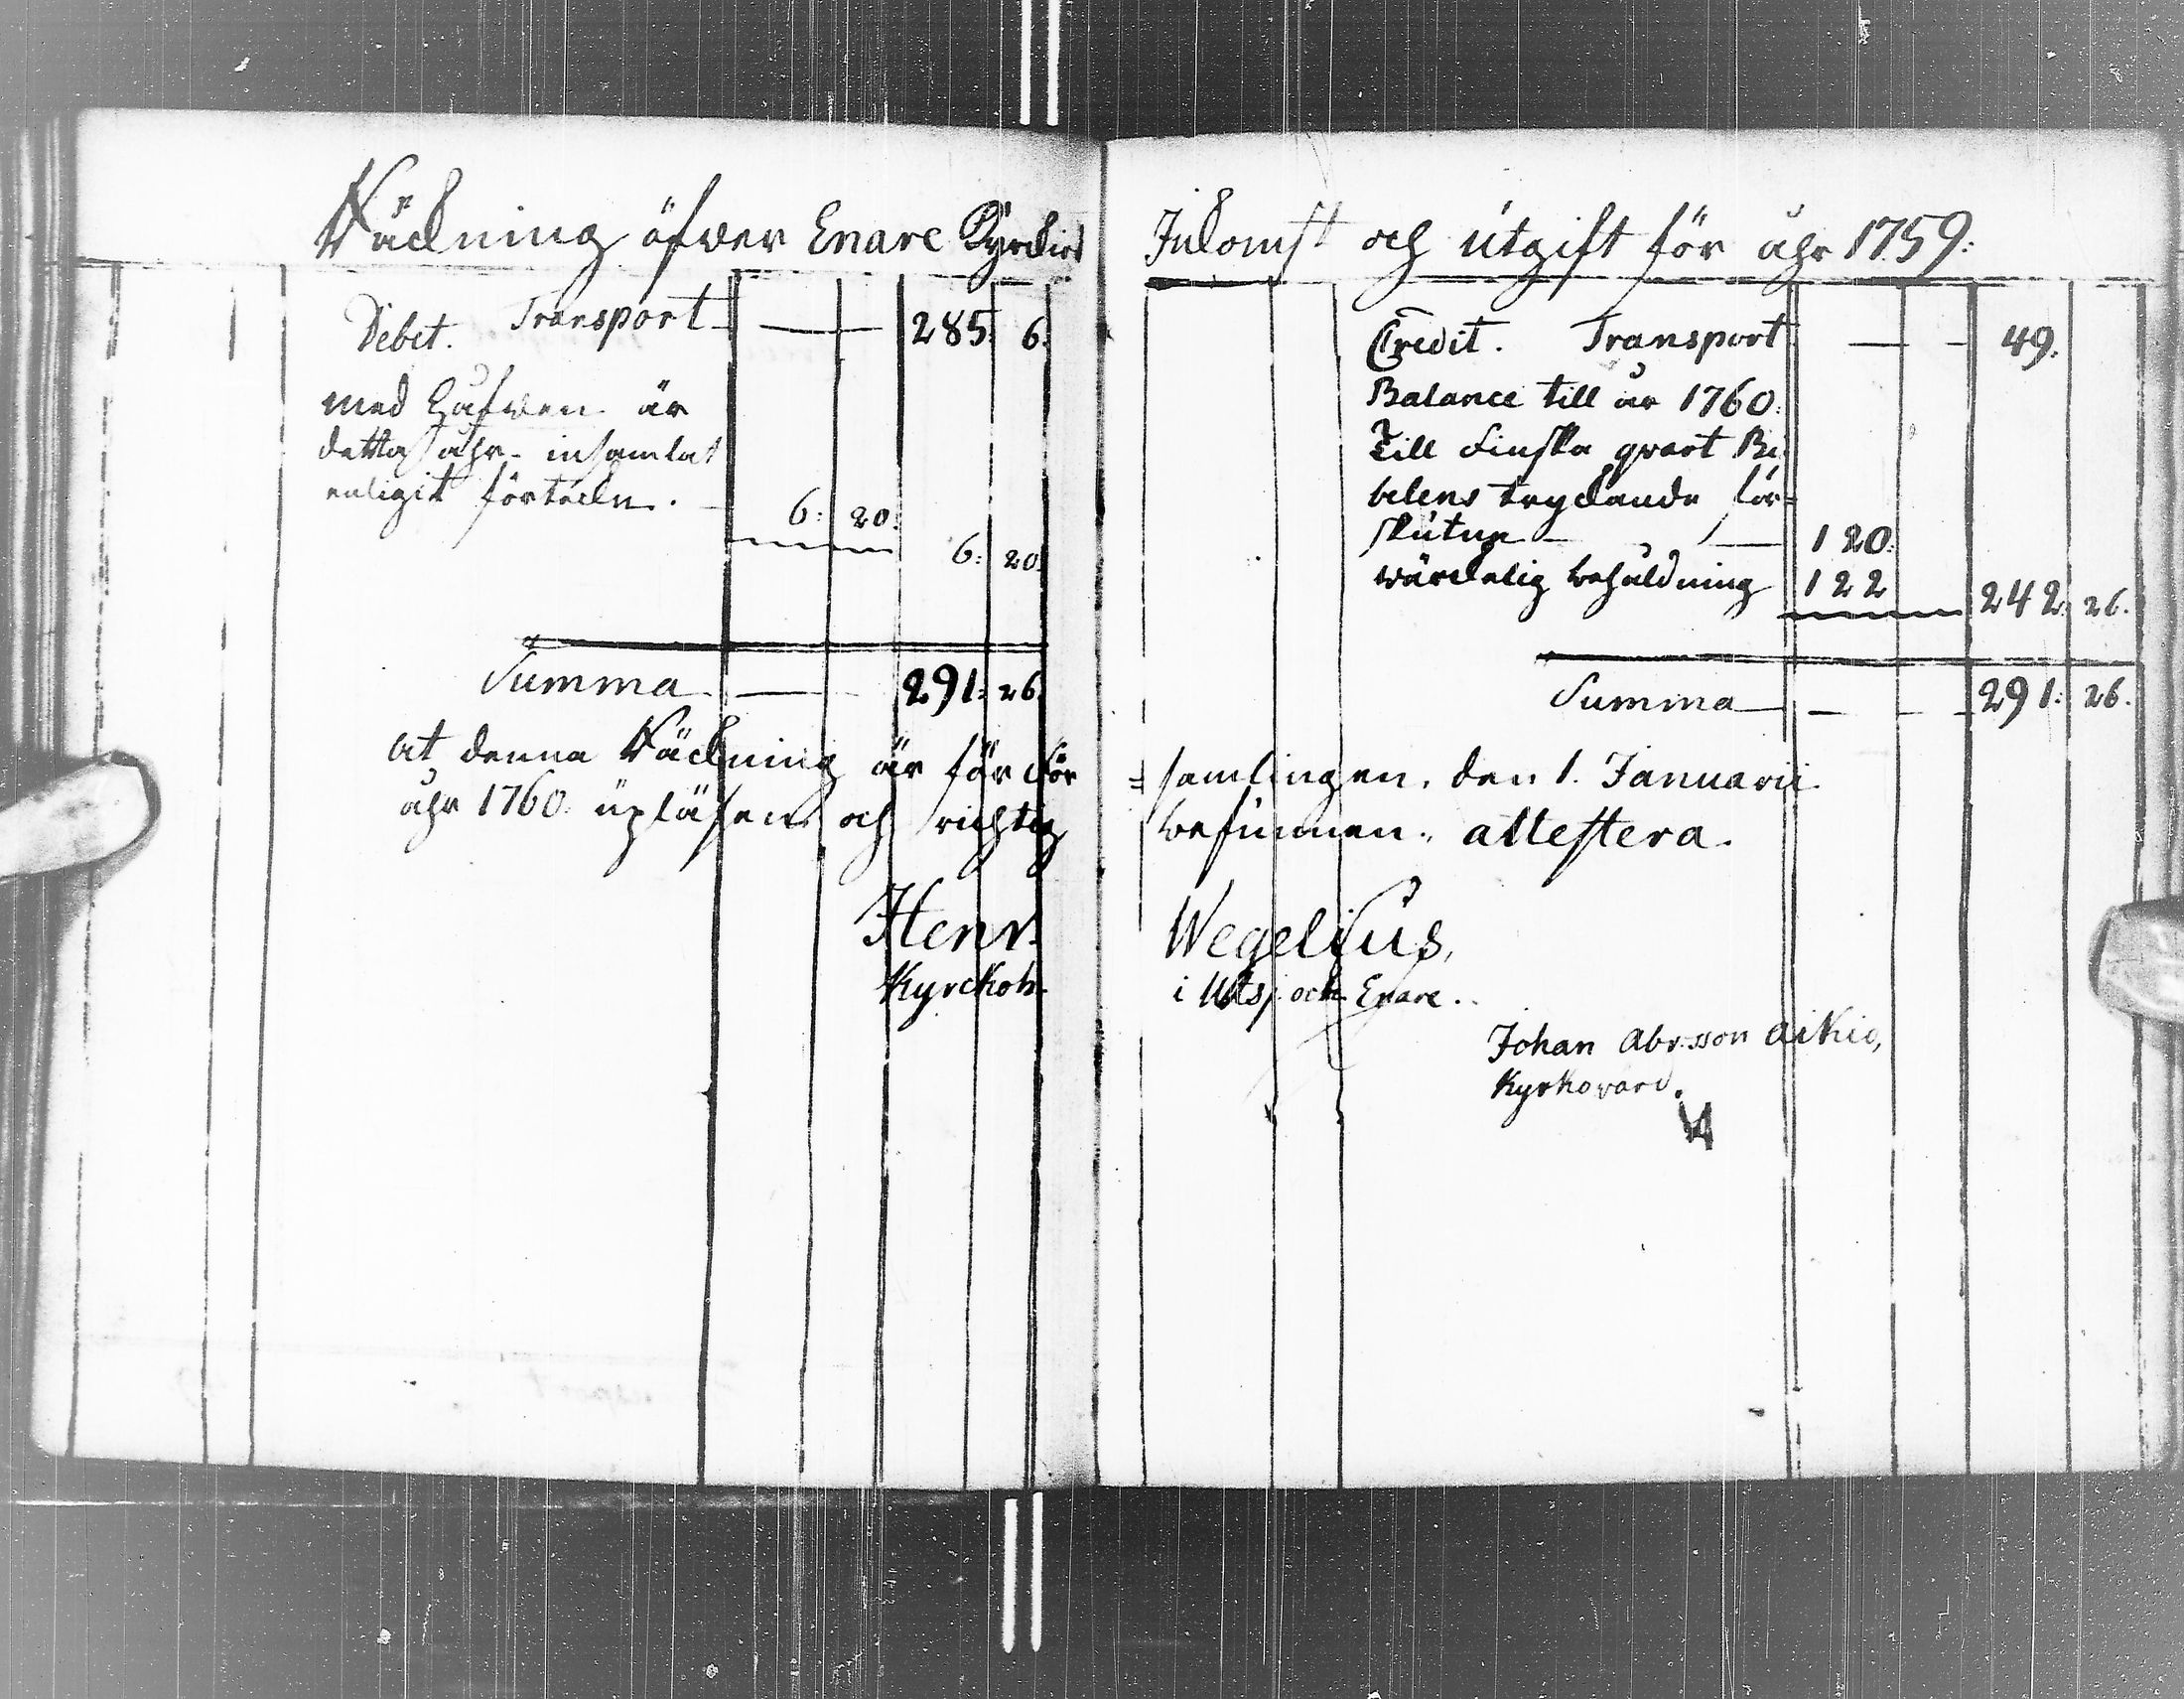 Räckning öfwer Enare Kyrckios
Debet. Transport — — 285. 6.
med Håfwen är
detta åhr insamlat
enligit förteckn. — 6: 20:
6: 20.
Summa — 291: 26.
at denna Räckning är för För
åhr 1760. upläsen och richtig
Henr.
Kyrckoh.
Inkomst och utgift för åhr 1759:
Credit. Transport — — 49.
Balance till år 1760.
Till Finska qvart Bi
belens tryckande för=
skutne — — 120.
wärckelig behåldning 122 242. 26.
Summa — — — 291: 26.
=samlingen, den 1. Januarii
befunnen, attestera.
Wegelius,
i Utsj. och Enare.
Johan Abr.sson Aikio,
Kyrkovärd.